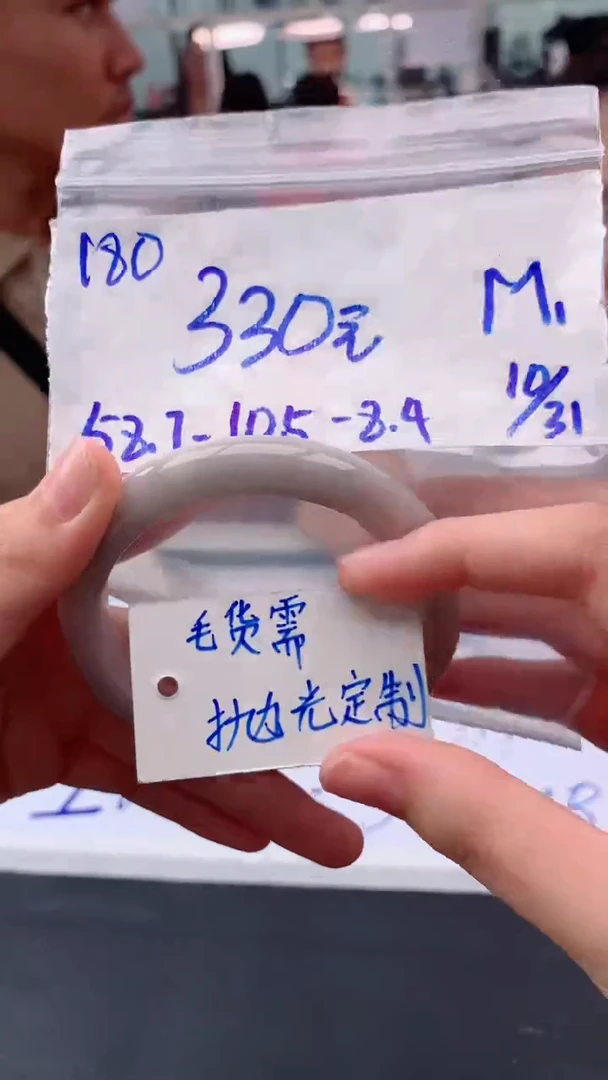 180
330元
M1
10/31
58.7-10.5-8.4
毛货需
抛光定制